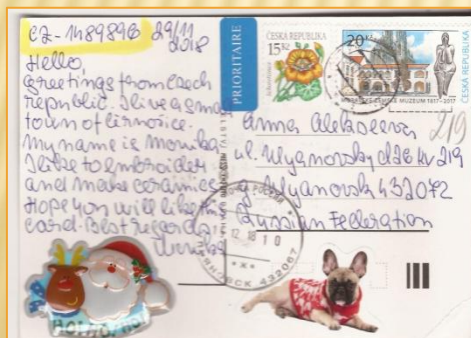 CZ-1489896 29/11
2018
Hello,
Greetings from Czech
republic. I live a small
town of Černošice.
My name is Monika
I like to embroider
and make ceramics
Hope you will like the
card. Best regards
PRIORITAIRE
ČESKÁ REPUBLIKA
15 Kč
20 Kč
MUZEUM 1817-2017
ČESKÁ REPUBLIKA
219
Anna Alekseeva
ul. Ulyanovsky d26 kv 219
g. Ulyanovsk 432072
Russian Federation
12.18 10
УЛЬЯНОВСК 432067
HO! HO! HO!